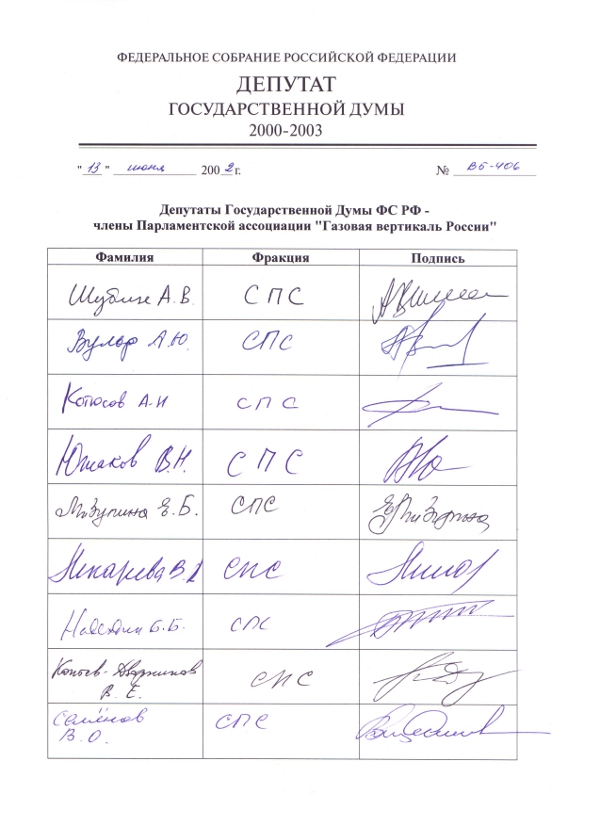 ФЕДЕРАЛЬНОЕ СОБРАНИЕ РОССИЙСКОЙ ФЕДЕРАЦИИ
ДЕПУТАТ
ГОСУДАРСТВЕННОЙ ДУМЫ
2000-2003
"13" июня 2002 г. № ВБ-406
Депутаты Государственной Думы ФС РФ -
члены Парламентской ассоциации "Газовая вертикаль России"
Фамилия Фракция Подпись
А.В. СПС
Вульф А.Ю. СПС
Котюсов А.Н СПС
Южаков В.Н. СПС
Мизулина Е.Б. СПС Е Мизулина
СПС
Надеждин Б.Б. СПС
Коптев-Дворников
В.Е. СПС
Семёнов СПС
В.О.